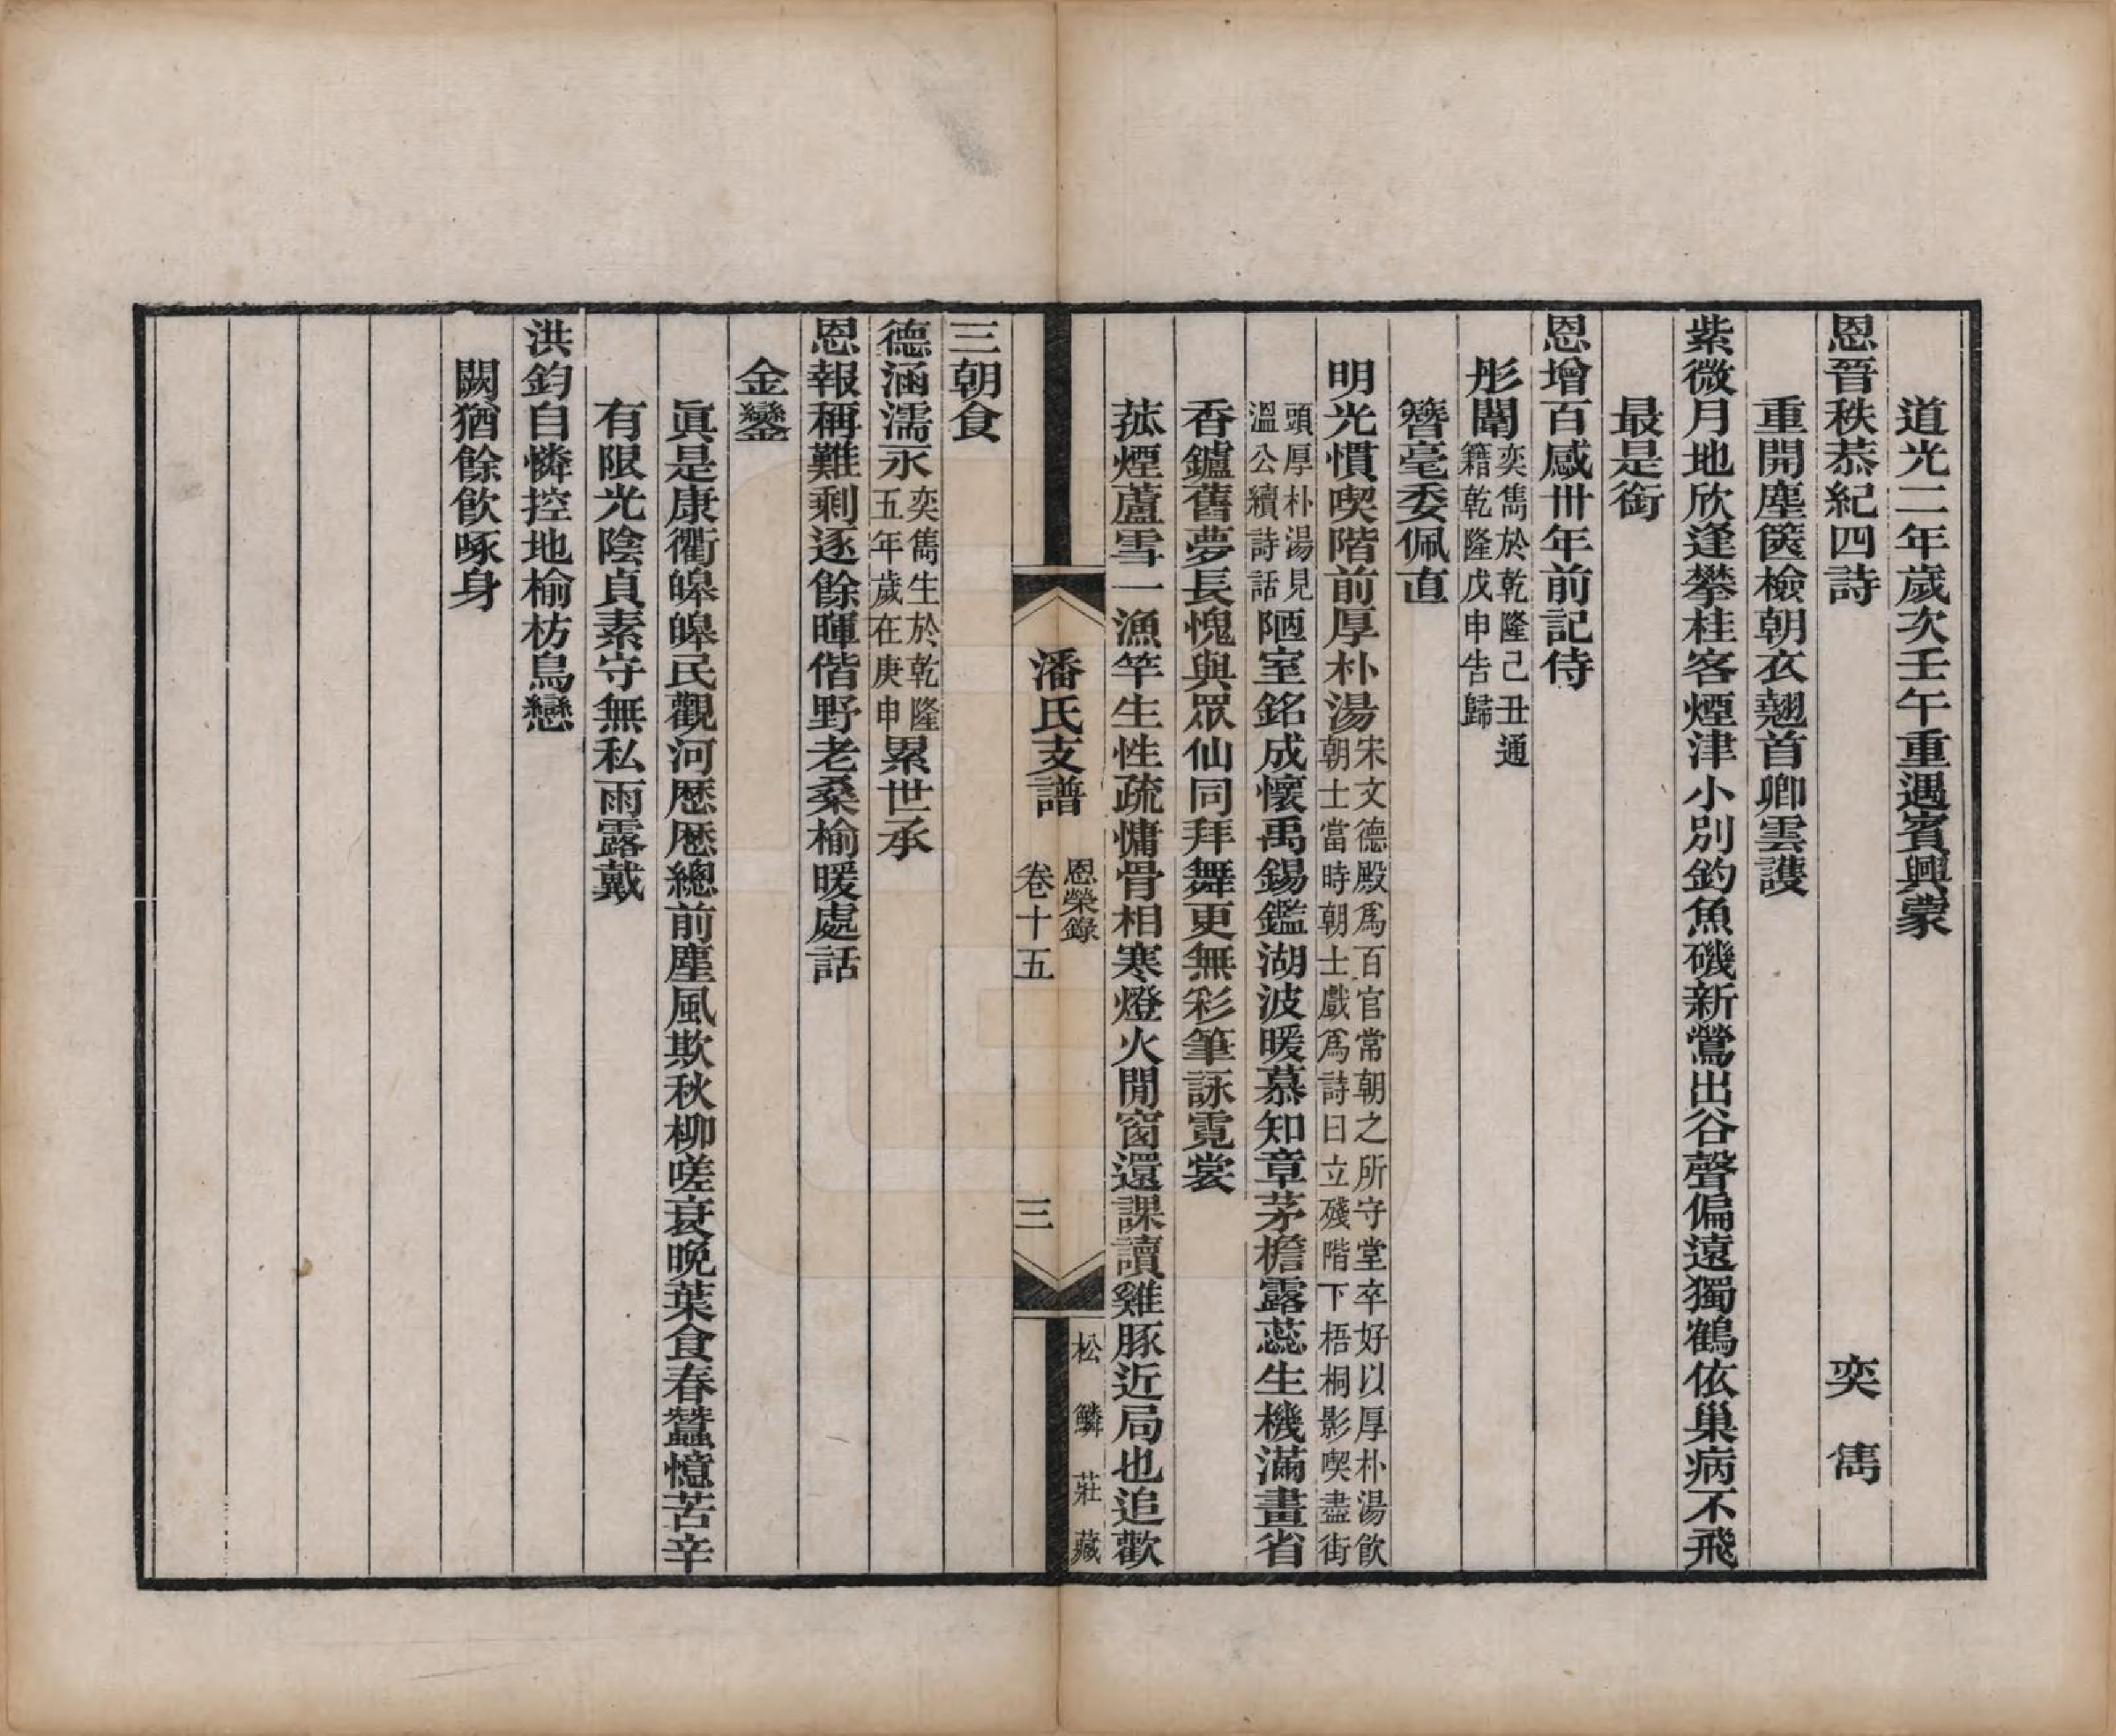 道光二年歲次壬午重遇賓興蒙
恩晉秩恭紀四詩　奕雋
重開塵篋檢朝衣翹首卿雲護
紫微月地欣逢攀桂客煙津小別釣魚磯新鶯出谷聲偏遠獨鶴依巢病不飛
最是銜
恩增百感卅年前記侍
彤闈奕雋於乾隆己丑通籍乾隆戊申告歸
簪毫委佩直
明光慣喫階前厚朴湯宋文德殿爲百官常朝之所守堂卒好以厚朴湯飲朝士當時朝士戲爲詩曰立殘階下梧桐影喫盡街
頭厚朴湯見溫公續詩話陋室銘成懷禹錫鑑湖波暖慕知章茅檐露蕊生機滿畫省
香鑪舊夢長愧與眾仙同拜舞更無彩筆詠霓裳
菰煙蘆雪一漁竿生性疏慵骨相寒燈火閒窗還課讀雞豚近局也追歡
潘氏支譜　恩榮錄　卷十五　三　松鱗莊藏
三朝食
德涵濡永奕雋生於乾隆五年歲在庚申累世承
恩報稱難剩逐餘暉偕野老桑榆暖處話
金鑾
眞是康衢皞皞民觀河歷歷總前塵風欺秋柳嗟衰晚葉食春蠶憶苦辛
有限光陰貞素守無私雨露戴
洪鈞自憐控地榆枋鳥戀
闕猶餘飮啄身